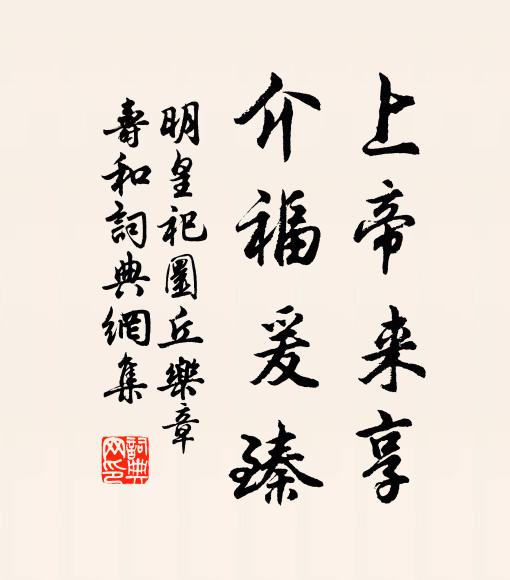 上帝来享
介福爰臻
明皇祀圜丘樂章
壽和詞典網集
詞典网印